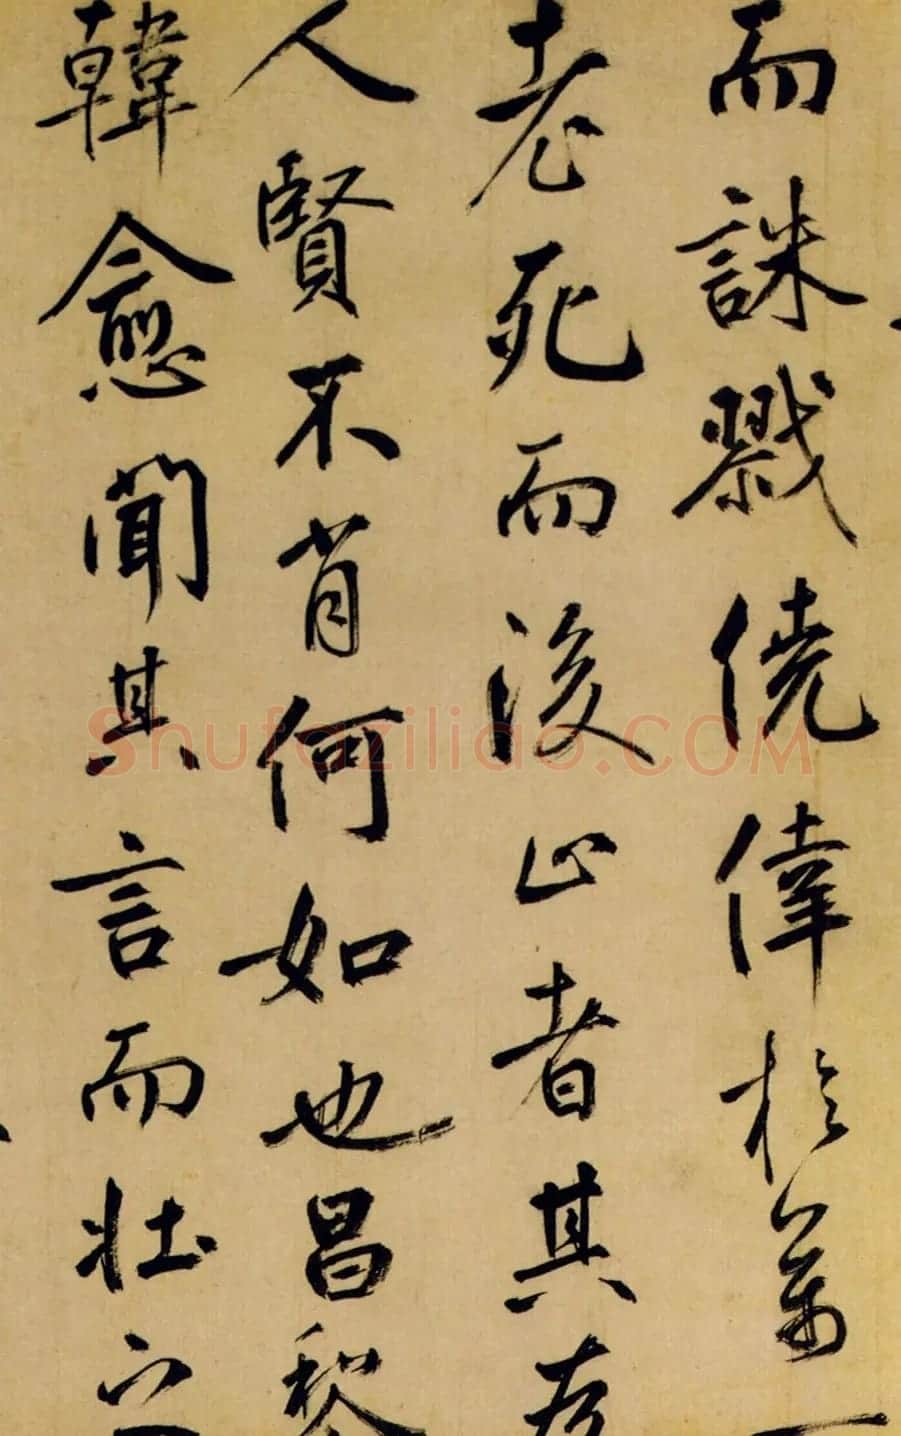 而誅戮僥倖於萬
老死而後止者其於
人賢不肖何如也昌黎
韓愈聞其言而壯之
Shufaziliao.COM